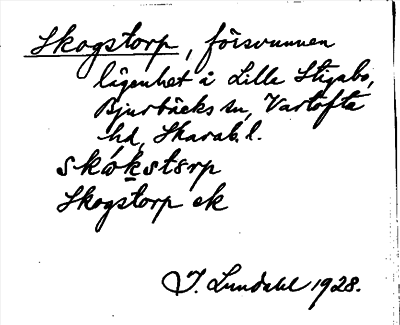 Skogstorp, försvunnen
lägenhet å Lilla Stigabo,
Bjurbäcks sn, Vartofta
hd, Skarab. l.
skókstɛrp
Skogstorp ek
I. Lundahl 1928.